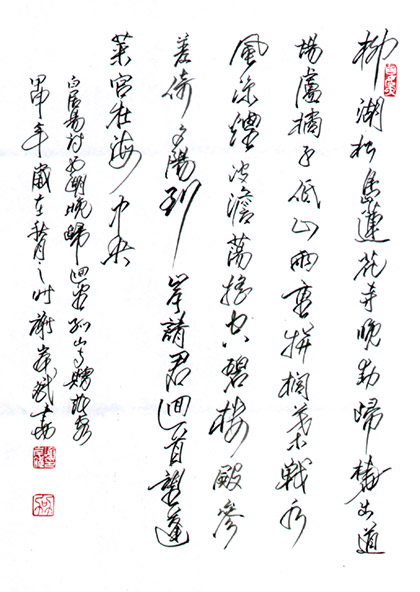 柳湖松島蓮花寺晚動歸橈出道
場盧橘子低山雨重栟櫚葉戰水
風涼煙波澹蕩搖空碧樓殿參
差倚夕陽到岸請君迴首望蓬
萊宮在海中央
白居易詩西湖晚歸迴望孤山寺贈諸客
甲申年歲在之謝斌書